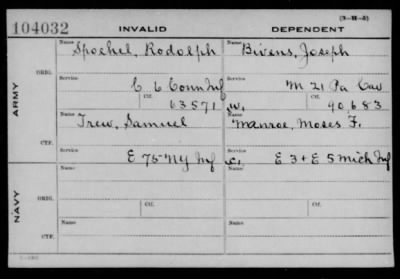 (3-H-5)
104032 INVALID DEPENDENT
ARMY
ORIG.
Name Spoehel, Rodolph
Name Bivens, Joseph
Service C 6 Conn Inf
Service M 21 Pa Cav
Ctf. 63571
W. Ctf. 90,683
CTF.
Name Trew, Samuel
Name Manroe, Moses F.
Service E 75 NY Inf
C. Service E 3 + E 5 Mich Inf
NAVY
ORIG.
Name
Name
Ctf.
Ctf.
CTF.
Name
Name